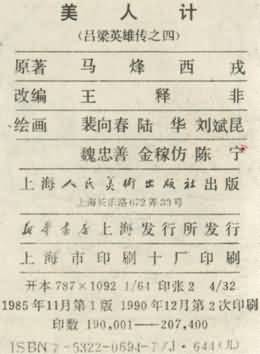 美人计
(吕梁英雄传之四)
原著 马烽 西戎
改编 王释非
绘画 裴向春 陆华 刘斌昆
魏忠善 金稼仿 陈宁
上海人民美術出版社出版
上海长乐路672弄33号
新华书店上海发行所发行
上海市印刷十厂印刷
开本787×1092 1/64 印张2 4/32
1985年11月第1版 1990年12月第2次印刷
印数 190,001——207,400
ISBN7-5322-0694-7/J·644(儿)